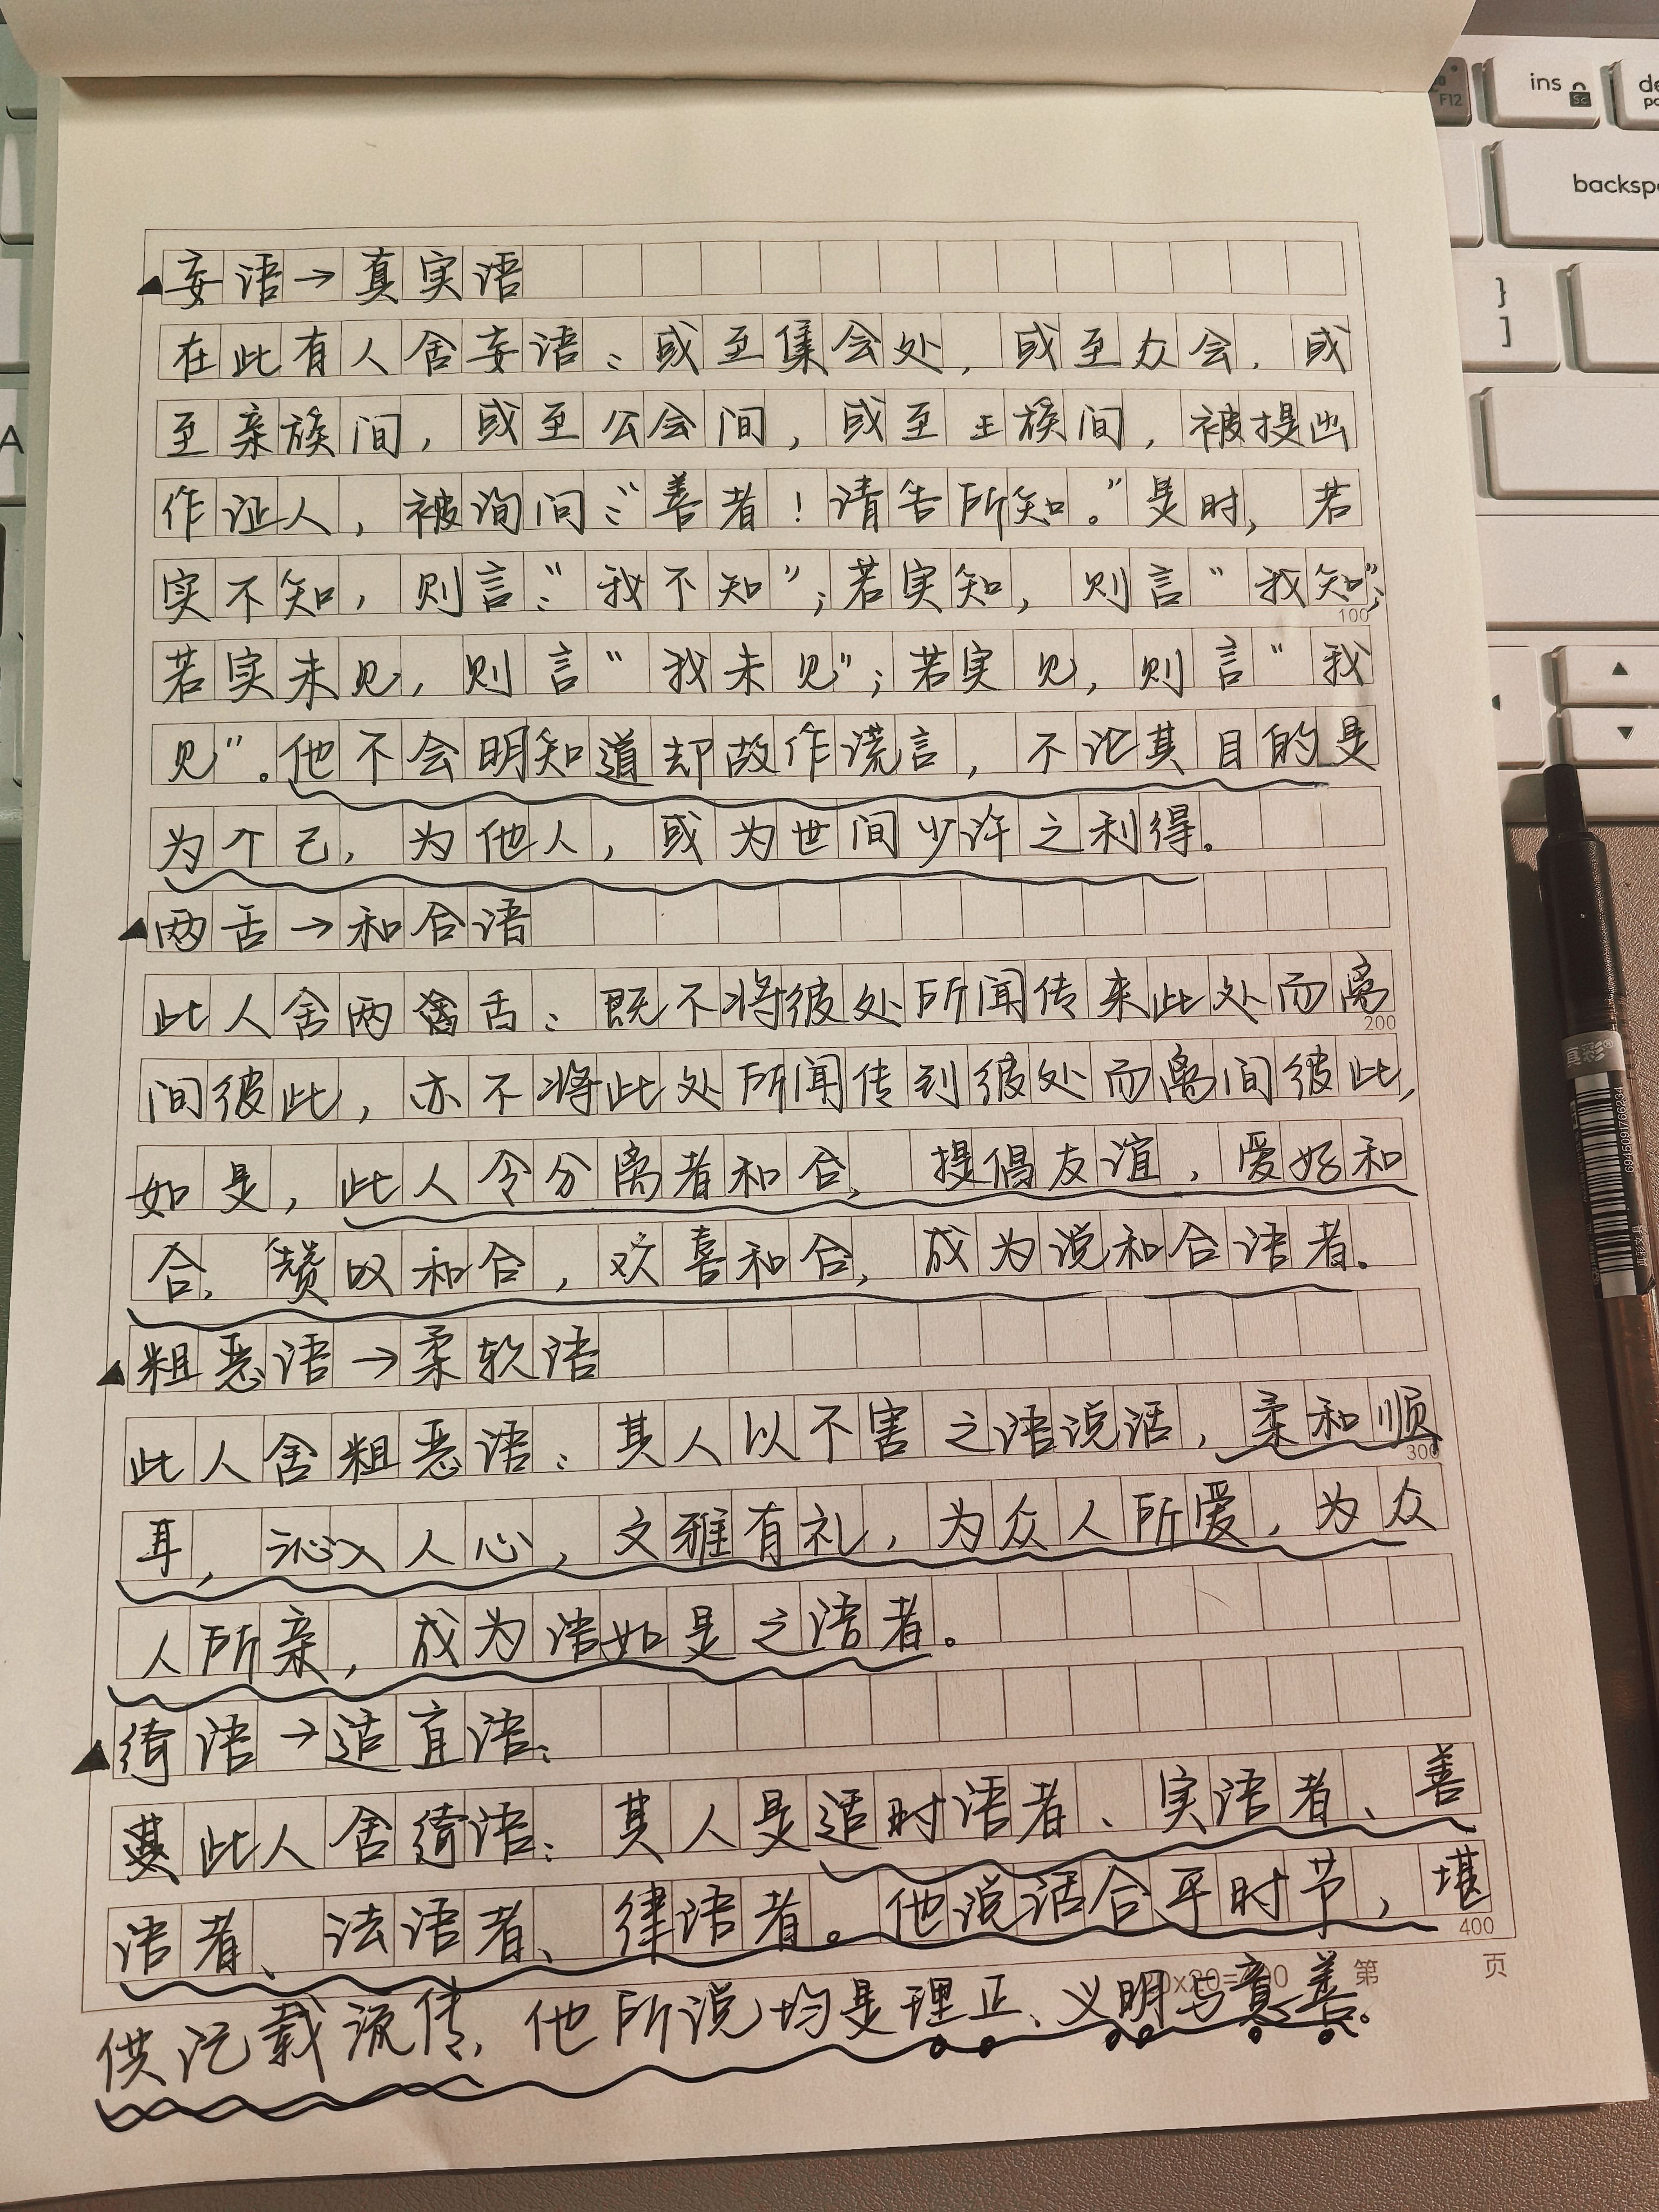 妄语→真实语
在此有人舍妄语:或至集会处,或至众会,或
至亲族间,或至公会间,或至王族间,被提出
作证人,被询问:“善者!请告所知。”是时,若
实不知,则言:“我不知”;若实知,则言“我知”;
100
若实未见,则言“我未见”;若实见,则言“我
见”。他不会明知道却故作谎言,不论其目的是
为个己,为他人,或为世间少许之利得。
两舌→和合语
此人舍两舌:既不将彼处所闻传来此处而离
200
间彼此,亦不将此处所闻传到彼处而离间彼此,
如是,此人令分离者和合,提倡友谊,爱好和
合,赞叹和合,欢喜和合,成为说和合语者。
粗恶语→柔软语
此人舍粗恶语:其人以不害之语说话,柔和顺
300
耳,沁入人心,文雅有礼,为众人所爱,为众
人所亲,成为语如是之语者。
绮语→适宜语:
此人舍绮语:其人是适时语者、实语者、善
语者、法语者、律语者。他说话合乎时节,堪
400
第 页
供记载流传,他所说均是理正、义明与意善。
ins
F12
backsp
}
]
A
真彩®
6945091766234